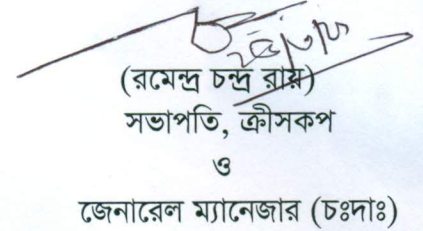 (রমেন্দ্র চন্দ্র রায়)
সভাপতি, ক্রীসকপ
ও
জেনারেল ম্যানেজার (চঃদাঃ)